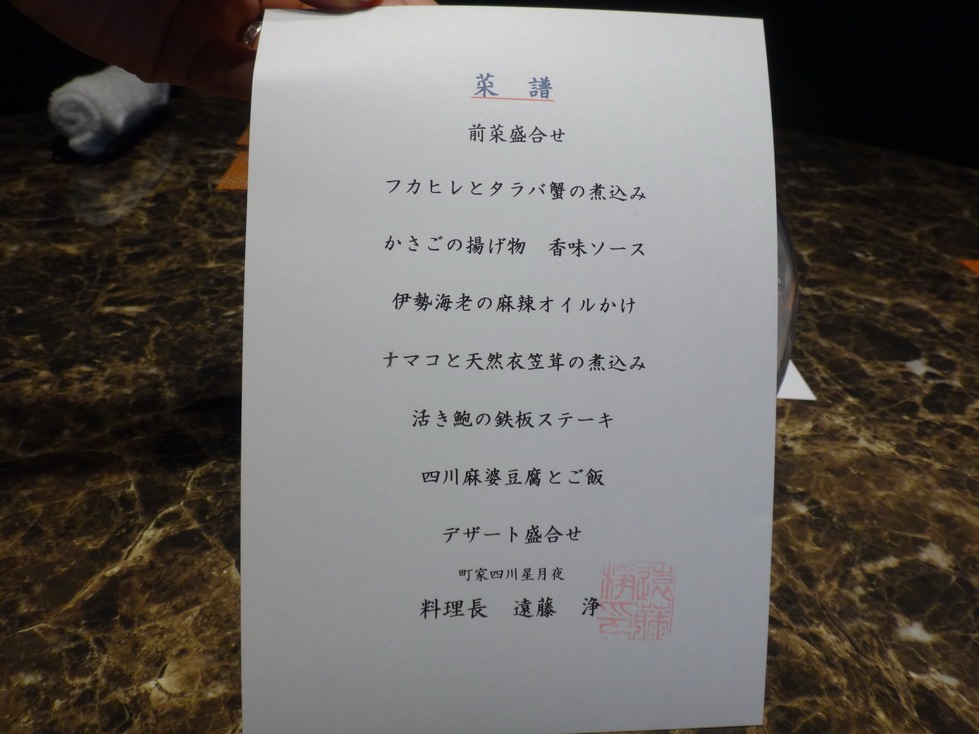 菜　譜
前菜盛合せ
フカヒレとタラバ蟹の煮込み
かさごの揚げ物　香味ソース
伊勢海老の麻辣オイルかけ
ナマコと天然衣笠茸の煮込み
活き鮑の鉄板ステーキ
四川麻婆豆腐とご飯
デザート盛合せ
町家四川星月夜
料理長　遠藤　浄
遠藤
浄印